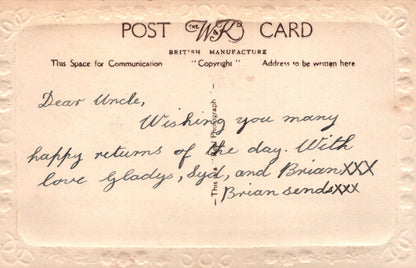 POST THE W&K CARD
BRITISH MANUFACTURE
This Space for Communication "Copyright" Address to be written here
Dear Uncle,
Wishing you many
happy returns of the day. With
love Gladys, Syd, and Brian XXX
Brian sends xxx
This is a Real Photograph